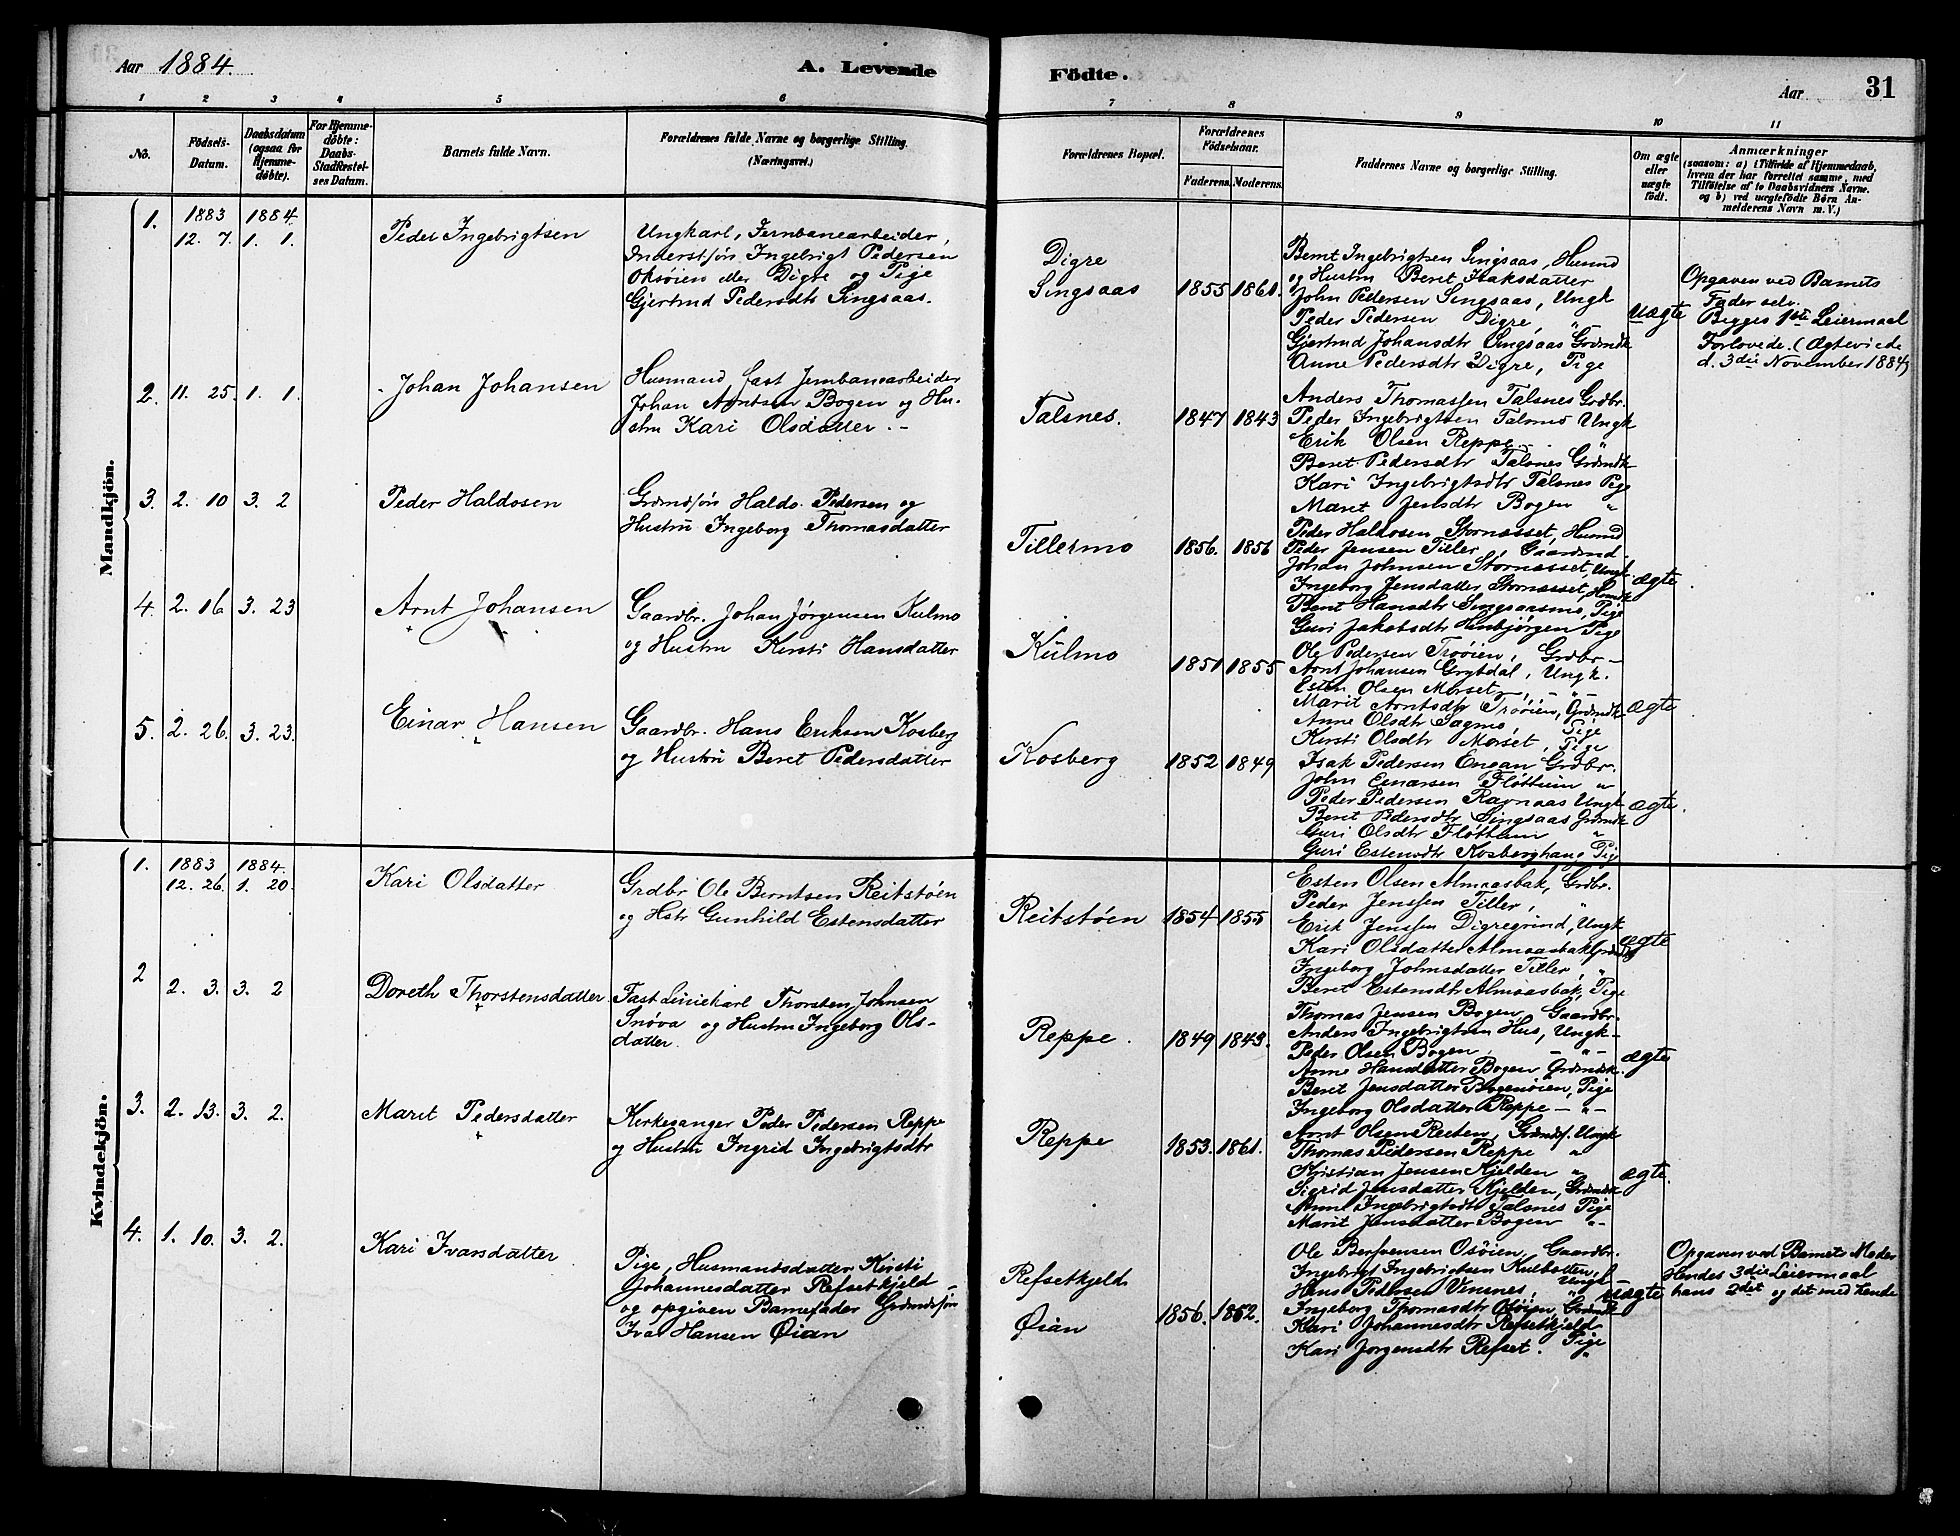 Aar 1884.
A. Levende Födte.
Aar 31
1 2 3 4 5 6 7 8 9 10 11
No.
Födsels-Datum.
Daabsdatum (ogsaa for Hjemme-döbte).
For Hjemme-döbte: Daabs-Stadfæstel-ses Datum.
Barnets fulde Navn.
Forældrenes fulde Navne og borgerlige Stilling.
(Næringsvei.)
Forældrenes Bopæl.
Forældrenes Födselsaar.
Faderens. Moderens.
Faddernes Navne og borgerlige Stilling.
Om ægte eller uægte födt.
Anmærkninger
(saasom: a) i Tilfælde af Hjemmedaab,
hvem der har forrettet samme, med
Tilföielse af to Daabsvidners Navne.
og b) ved uægtefödte Börn An-
melderens Navn m. V.)
Mandkjön.
1. 1883 12. 7. 1884. 1. 1.
Peder Ingebrigtsen
Ungkarl, Jernbanearbeider,
Inderstsøn Ingebrigt Pedersen
Oksøien eller Digre og Pige
Gjertrud Pedersdtr Singsaas.
Digre
Singsaas
1855 1861.
Bernt Ingebrigtsen Singsaas, Husmd
og Hustru Beret Isaksdatter
John Pedersen Singsaas, Ungk
Peder Pedersen Digre, "
Gjertrud Johansdtr Singsaas Grdmdk
Anne Pedersdtr Digre, Pige
Uægte
Opgaven ved Barnets
Fader selv.
Begges 1ste Leiermaal
Forlovede. (Ægteviede
d. 3die November 1884)
2. 11. 25. 1. 1.
Johan Johansen
Husmand, fast Jernbanearbeider
Johan Arntsen Bogen og Hu-
stru Kari Olsdatter. -
Talsnes.
1847 1843
Anders Thomassen Talsnes Grdbr.
Peder Ingebrigtsen Talsnes Ungk
Erik Olsen Reppe. "
Beret Pedersdtr Talsnes Grdmdk
Kari Ingebrigtsdtr Talsnes Pige
Maret Jensdtr Bogen "
3. 2. 10 3. 2
Peder Haldosen
Grdmdsøn Haldo Pedersen og
Hustru Ingeborg Thomasdatter
Tillermo
1856. 1856
Peder Haldosen Stornesset, Husmd
Peder Jensen Tiller, Gaardmd.
Johan Johnsen Stornesset, Ungk
Ingeborg Jensdatter Stornesset, Hsmdk
Beret Hansdtr Singsaasmo, Pige
Guri Jakobsdtr Henbjørgen Pige
ægte
4. 2. 16 3. 23
Arnt Johansen
Gaardbr. Johan Jørgensen Kulmo
og Hustru Kirsti Hansdatter
Kulmo
1851 1855
Ole Pedersen Trøøien, Grdbr -
Arnt Johansen Grytdal, Ungk.
Esten Olsen Morset, - " -
Marit Arntsdtr Trøøien, Grdmdk
Anne Olsdtr Sagmo, Pige
Kirsti Olsdtr Morset, Pige
ægte
5. 2. 26. 3. 23.
Einar Hansen
Gaardbr. Hans Eriksen Kosberg
og Hustru Beret Pedersdatter
Kosberg
1852 1849
Isak Pedersen Engan Grdbr.
John Einarsen Fløttum "
Peder Pedersen Ravnaas Ungk
Beret Pedersdtr Singsaas Grdmdk
Guri Olsdtr Fløttum "
Guri Estensdtr Kosberghaug Pige
ægte.
Kvindekjön.
1. 1883 12. 26. 1884. 1. 20.
Kari Olsdatter
Grdbr Ole Berntsen Reitstøen
og Hstr Gunhild Estensdatter
Reitstøen
1854 1855
Esten Olsen Almaasbak, Grdbr.
Peder Jenssen Tiller, "
Erik Jenssen Digregrind, Ungk
Kari Olsdatter Almaasbak Grdmdk
Ingeborg Johnsdatter Tiller, "
Beret Estensdtr Almaasbak, Pige
ægte
2 2. 3. 3. 2
Doreth Thorstensdatter
Fast Liniekarl Thorsten Johnsen
Snøva og Hustru Ingeborg Ols-
datter.
Reppe.
1849 1843.
Thomas Jensen Bogen, Gaardbr.
Anders Ingebrigtsen Hus, Ungk -
Peder Olsen Bogen - " -
Anne Hansdatter Bogen Grdmdk.
Beret Jensdatter Bogenøien, Pige
Ingeborg Olsdatter Reppe - " -
ægte
3. 2. 13. 3. 2.
Marit Pedersdatter
Kirkesanger Peder Pedersen Reppe
og Hustru Ingrid Ingebrigtsdtr
Reppe
1853. 1861.
Arnt Olsen Reiten, Grdmds. Ungk
Thomas Pedersen Reppe "
Kristian Jensen Kjelden "
Sigrid Jensdatter Kjelden, Grdmdk
Anne Ingebrigtsdtr Talsnes Pige
Marit Jensdatter Bogen "
ægte.
4. 1. 10. 3. 2.
Kari Ivarsdatter
Pige, Husmandsdatter Kirsti
Johannesdatter Refsetkjeld -
og opgiven Barnefader Grdmdsøn
Ivar Hansen Øian
Refsetkjeld
Øian
1856. 1862.
Ole Bersvensen Osøien, Gaardbr.
Ingebrigt Ingebrigtsen Kulbotten,
Hans Pedersen Vinsnes, Ungk -
Ingeborg Thomasdtr Osøien, Grdmdk
Kari Johannesdtr Refsetkjeld
Kari Jørgensdtr Refset. Pige
uægte
Opgaven ved Barnets Moder
Hendes 3die Leiermaal
hans 2det og det med hende